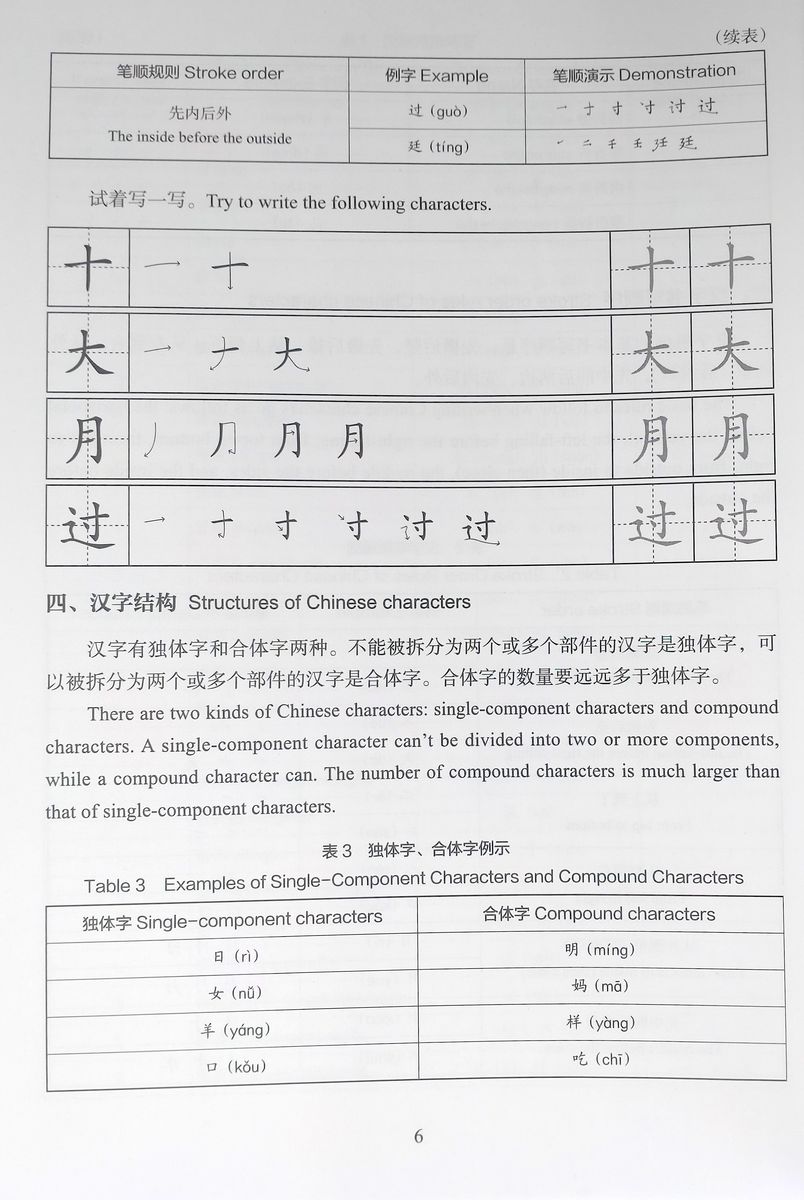 （续表）
笔顺规则 Stroke order 例字 Example 笔顺演示 Demonstration
先内后外
The inside before the outside
过（guò） 一 寸 寸 寸 讨 过
廷（tíng）
试着写一写。Try to write the following characters.
十 一 十 十 十
大 一 ナ 大 大 大
月 丿 ⺆ 月 月 月 月
过 一 寸 过 过 过
四、汉字结构 Structures of Chinese characters
汉字有独体字和合体字两种。不能被拆分为两个或多个部件的汉字是独体字，可
以被拆分为两个或多个部件的汉字是合体字。合体字的数量要远远多于独体字。
There are two kinds of Chinese characters: single-component characters and compound
characters. A single-component character can't be divided into two or more components,
while a compound character can. The number of compound characters is much larger than
that of single-component characters.
表 3 独体字、合体字例示
Table 3 Examples of Single-Component Characters and Compound Characters
独体字 Single-component characters 合体字 Compound characters
日（rì） 明（míng）
女（nǚ） 妈（mā）
羊（yáng） 样（yàng）
口（kǒu） 吃（chī）
6